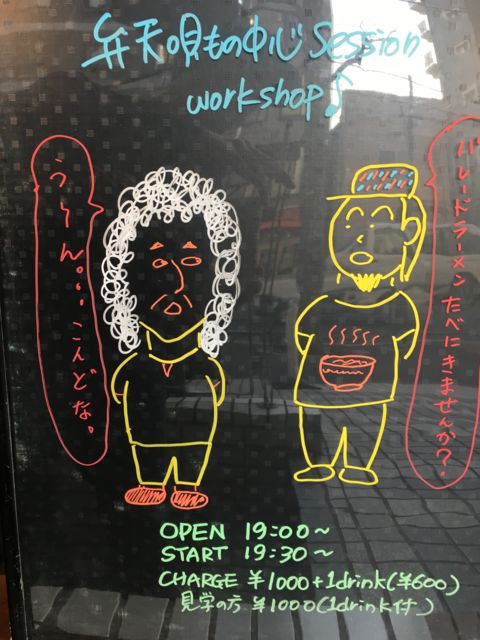 弁天唄もの中心 Session
workshop♪
バレードラーメン たべにきませんか?
うーん。。。こんどな。
OPEN 19:00~
START 19:30~
CHARGE ¥1000+1drink(¥600)
見学の方 ¥1000(1drink付)